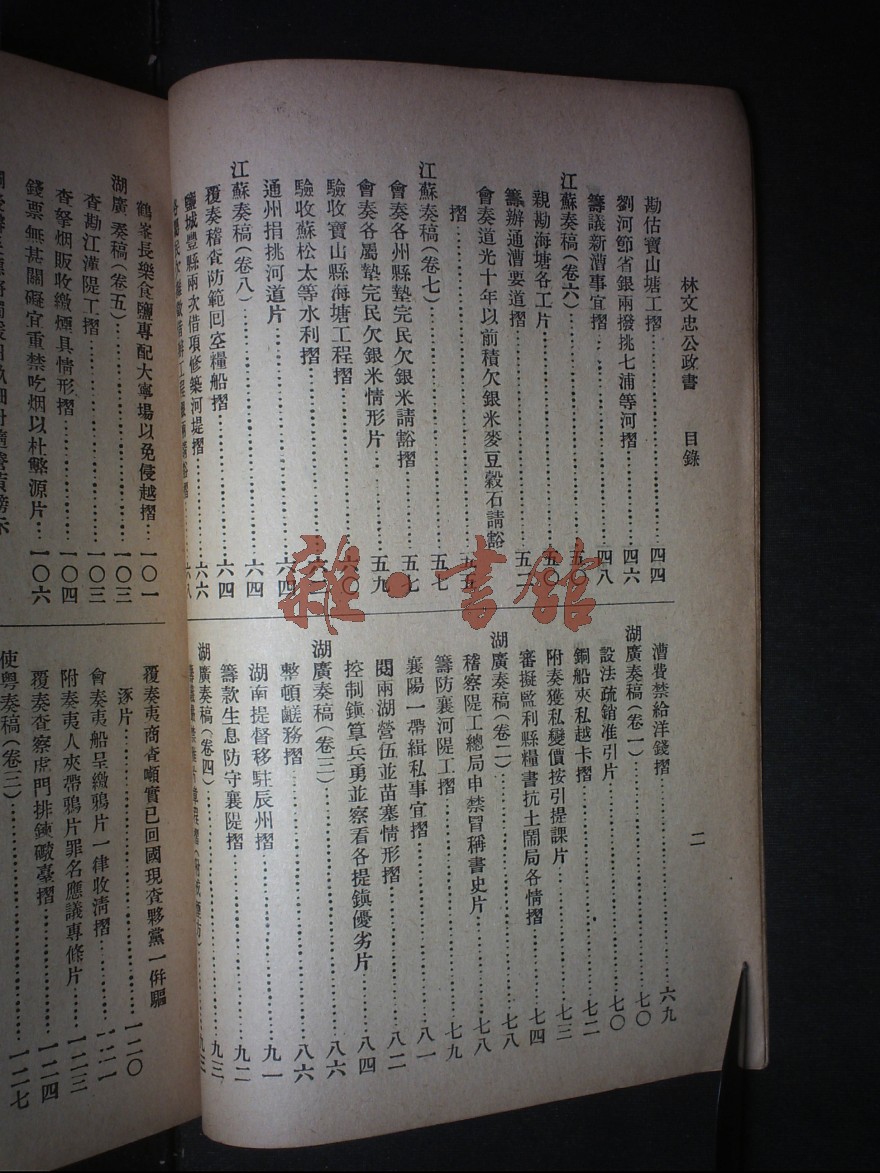 林文忠公政書　目錄
二
勘估寶山塘工摺……四四
劉河節省銀兩撥挑七浦等河摺……四六
籌議新漕事宜摺……四八
江蘇奏稿(卷六)……五〇
親勘海塘各工片……五〇
籌辦通漕要道摺……五二
會奏道光十年以前積欠銀米麥豆穀石請豁
摺……五五
江蘇奏稿(卷七)……五七
會奏各州縣墊完民欠銀米請豁摺……五七
會奏各屬墊完民欠銀米情形片……五九
驗收寶山縣海塘工程摺……六〇
驗收蘇松太等水利摺……六二
通州捐挑河道片……六四
江蘇奏稿(卷八)……六四
覆奏稽查防範回空糧船摺……六四
鹽城豐縣兩次借項修築河堤摺……六六
六八
漕費禁給洋錢摺……六九
湖廣奏稿(卷一)……七〇
設法疏銷准引片……七〇
銅船夾私越卡摺……七二
附奏獲私變價按引提課片……七三
審擬監利縣糧書抗土鬧局各情摺……七四
湖廣奏稿(卷二)……七八
稽察隄工總局申禁冒稱書史片……七八
籌防襄河隄工摺……七九
襄陽一帶緝私事宜摺……八一
閱兩湖營伍並苗寨情形摺……八二
控制鎮筸兵勇並察看各提鎮優劣片……八四
湖廣奏稿(卷三)……八六
整頓鹺務摺……八六
湖南提督移駐辰州摺……九一
籌款生息防守襄隄摺……九二
湖廣奏稿(卷四)……九三
鶴峯長樂食鹽專配大寧場以免侵越摺……一〇一
湖廣奏稿(卷五)……一〇三
查勘江漢隄工摺……一〇三
查拏烟販收繳煙具情形摺……一〇四
錢票無甚關礙宜重禁吃烟以杜弊源片……一〇六
覆奏夷商查噸實已回國現查夥黨一併驅
逐片……一二〇
會奏夷船呈繳鴉片一律收淸摺……一二一
附奏夷人夾帶鴉片罪名應議專條片……一二三
覆奏查察虎門排鍊礮臺摺……一二四
使粵奏稿(卷三)……一二七
雜·書館